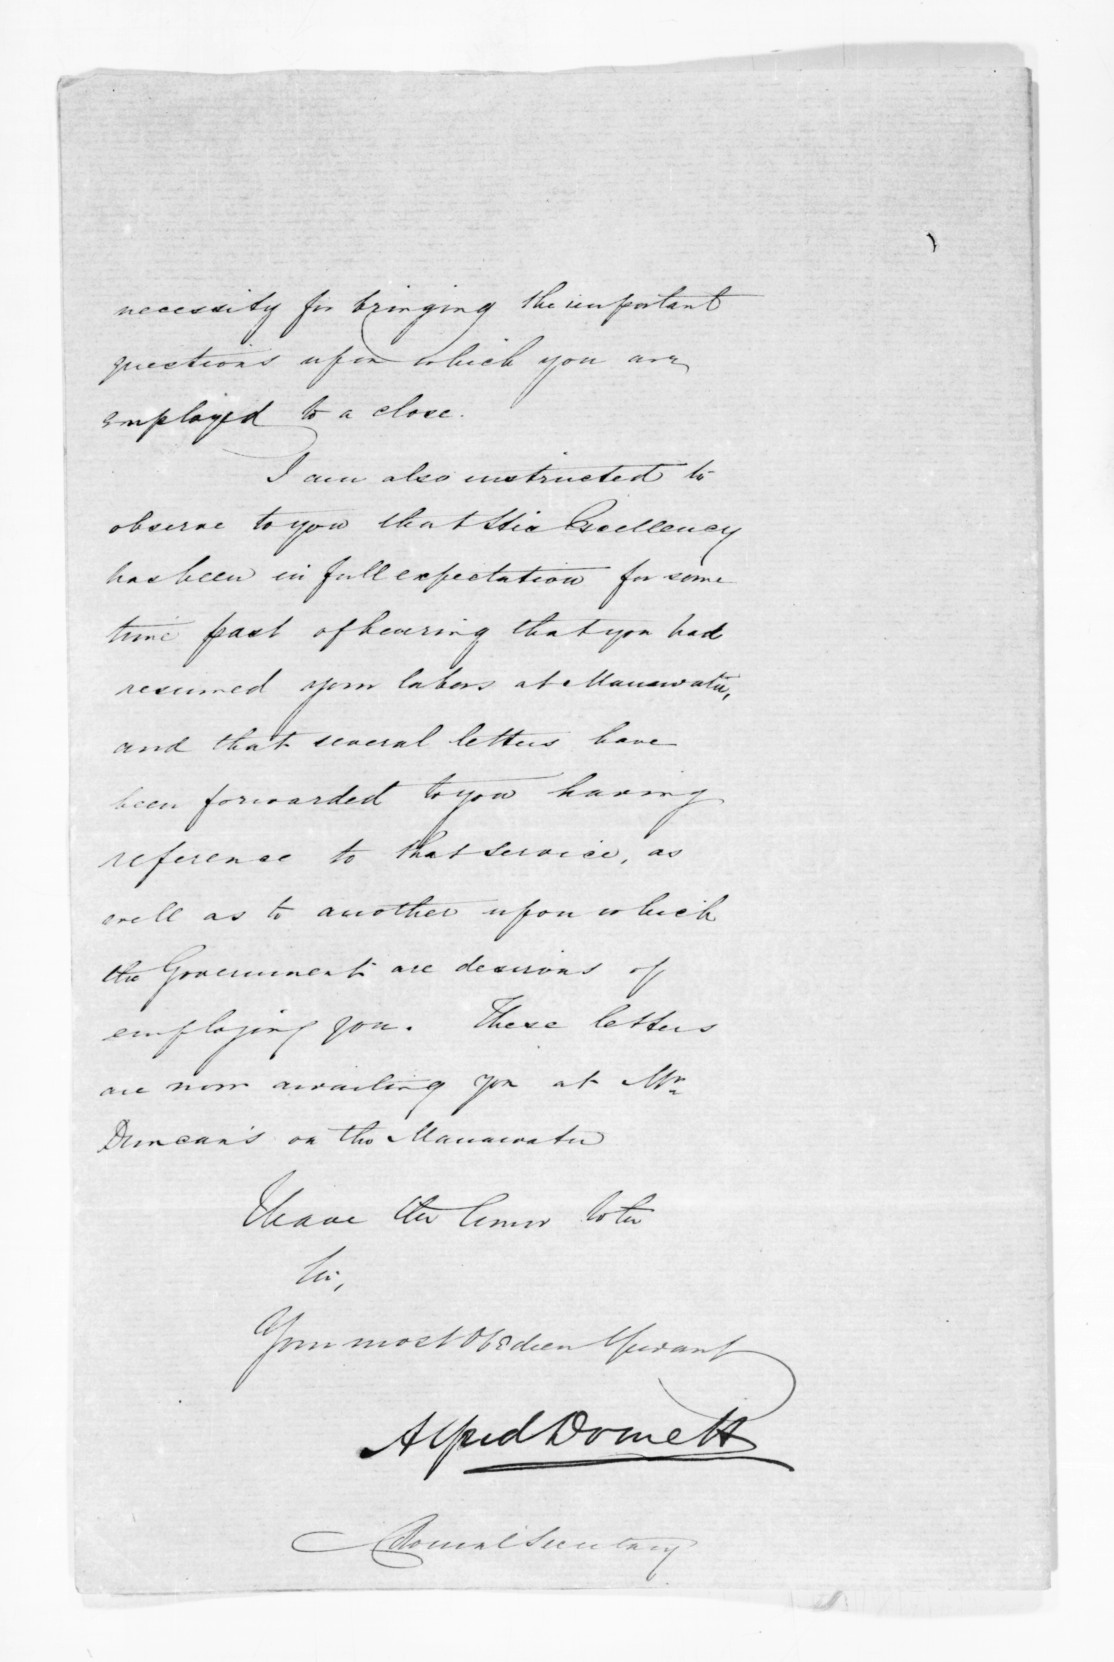 necessity for bringing the important
questions upon which you are
employed to a close.
I am also instructed to
observe to you that His Excellency
has been in full expectation for some
time past of hearing that you had
resumed your labors at Manawatu,
and that several letters have
been forwarded to you having
reference to that service, as
well as to another upon which
the Government are desirous of
employing you. These letters
are now awaiting you at Mr
Duncan's on the Manawatu
I have the honor to be
Sir,
Your most Obedient Servant
Alfred Domett
Colonial Secretary